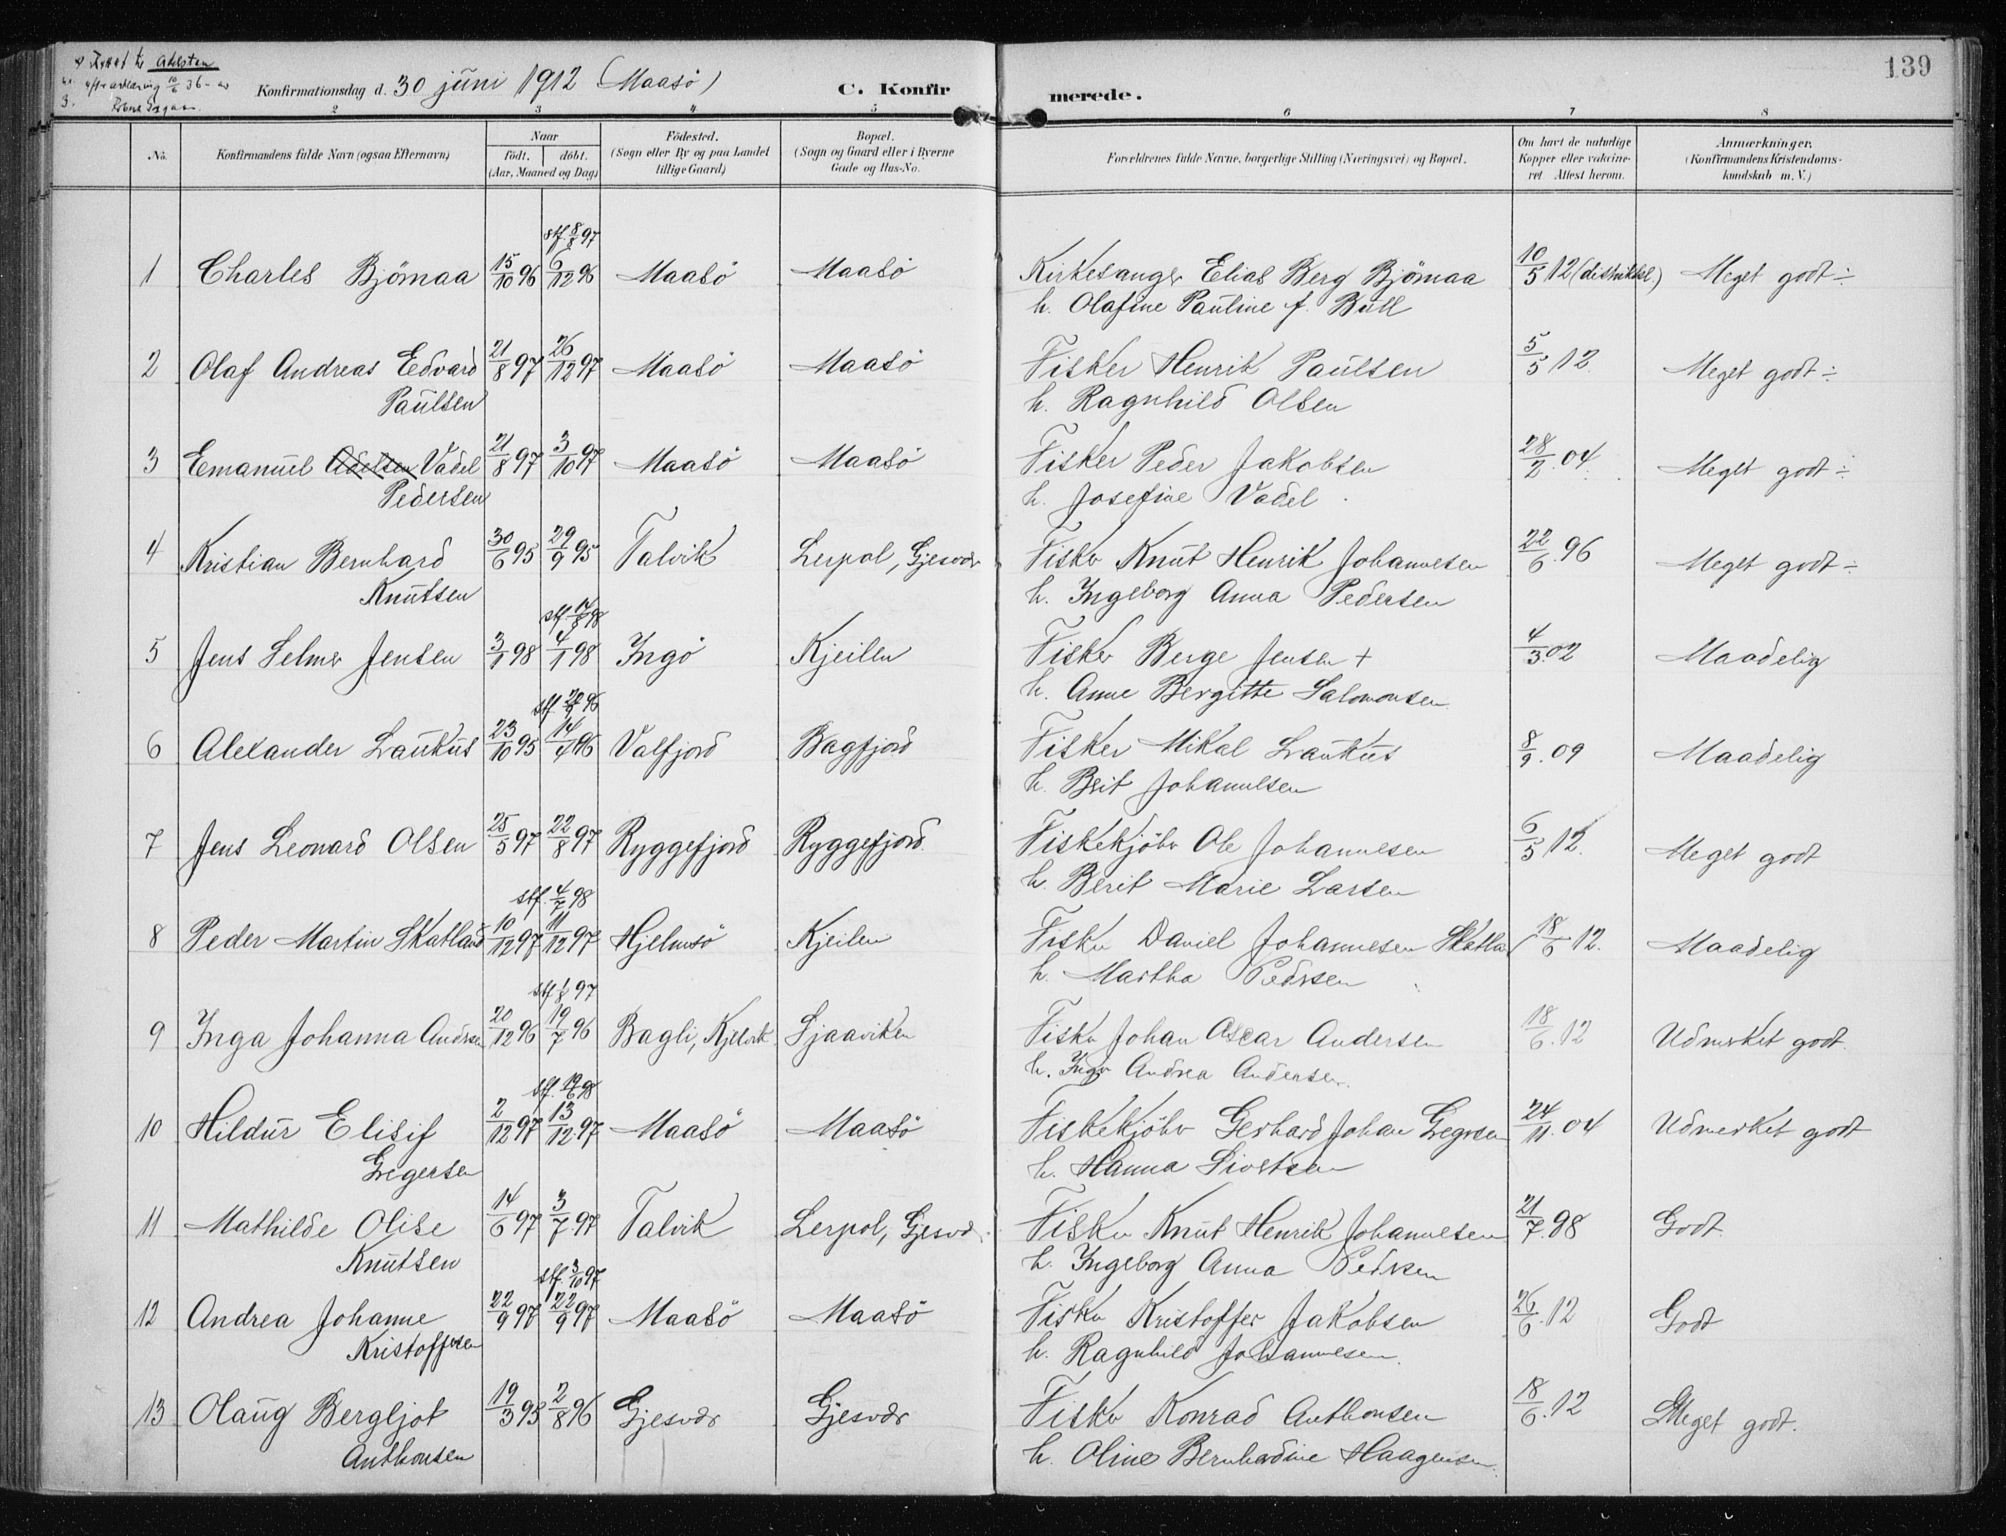 139
Rettet til Adelsten
nr. 3. efter erklæring 10/6 36
Konfirmationsdag d. 30 juni 1912 (Maasö)
C. Konfirmerede.
2 3 4 5 6 7 8
No. Konfirmandens fulde Navn (ogsaa Efternavn) Naar födt. döbt. (Aar, Maaned og Dag) Födested. (Sogn eller By og paa Landet tillige Gaard) Bopæl. (Sogn og Gaard eller i Byerne Gade og Hus-No. Forældrenes fulde Navne, borgerlige Stilling (Næringsvei) og Bopæl. Om havt de naturlige Kopper eller vaccineret Attest herom. Anmærkninger. (Konfirmandens Kristendomskundskab m. V.)
stf. 8/8 97
1 Charles Bjömaa 15/10 96 6/12 96 Maasö Maasö Kirkesanger Elias Berg Bjömaa 10/5 12 (distriktsl.) Meget godt ÷
h. Olafine Pauline f. Bull
2 Olaf Andreas Edvard 21/8 97 26/12 97 Maasö Maasö Fisker Henrik Paulsen 5/5 12. Meget godt ÷
Paulsen h. Ragnhild Olsen
3 Emanuel Adelsen Vadel 21/8 97 3/10 97 Maasö Maasö Fisker Peder Jakobsen 28/2 04. Meget godt ÷
Pedersen h. Josefine Vadel
4 Kristian Bernhard 30/6 95 29/9 95 Talvik Lerpol, Gjesvær Fisker Knut Henrik Johannesen 22/6 96 Meget godt ÷
Knutsen h. Ingeborg Anna Pedersen
5 Jens Selmer Jensen 3/1 98 4/1 98 Ingö Kjeilen Fisker Berge Jensen + 4/3 02 Maadelig
h. Anne Bergitte Salomonsen
6 Alexander Laukus 23/10 95 14/4 96 Valfjord Bagfjord Fisker Mikal Laukus 8/9. 09 Maadelig
h. Brit Johannesen
7 Jens Leonard Olsen 25/5 97 22/8 97 Ryggefjord Ryggefjord Fiskekjöbr Ole Johannesen 6/5 12. Meget godt
h. Berit Marie Larsen
stf. 4/7 98
8 Peder Martin Skatland 10/12 97 11/12 97 Hjelmsö Kjeilen Fisker Daniel Johannesen Skatla 18/6 12. Maadelig
h. Martha Pedrsen
9 Inga Johanna Andrsen 20/12 96 19/7 96 Bagli, Kjelvik Sjaaviken Fisker Johan Oscar Andersen 18/6. 12 Udmerket godt.
h. Ingr Andrea Andersen
10 Hildur Elisif 2/12 97 13/12 97 Maasö Maasö Fiskekjöbr Gerhard Johan Gregrsen 24/11. 04 Udmerket godt
Gregersen h. Hanna Sivertsen
11 Mathilde Olise 14/6 97 3/7 97 Talvik Lerpol, Gjesvær Fisker Knut Henrik Johannesen 21/7. 98 Godt
Knutsen h. Ingeborg Anna Pedrsen
stf. 3/10 97
12 Andrea Johanne 22/9 97 22/9 97 Maasö Maasö Fisker Kristoffer Jakobsen 26/6. 12 Godt
Kristoffersen h. Ragnhild Johannesen.
13 Olaug Bergljot 19/3 95 2/8 96 Gjesvær Gjesvær Fisker Konrad Anthonsen 18/6. 12 Meget godt.
Anthonsen h. Oline Bernhardine Haagensen.